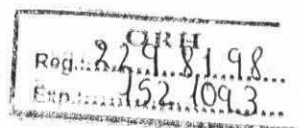 CIRH
Reg.: 2.29.81.98
Exp.: 152.109.3